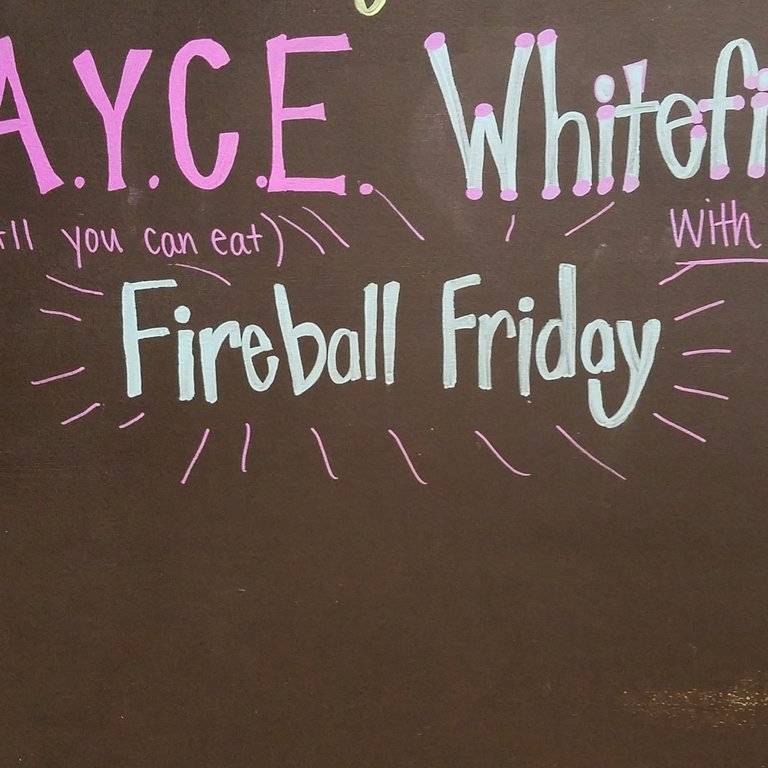 A.Y.C.E. Whitefi
all you can eat) With
Fireball Friday